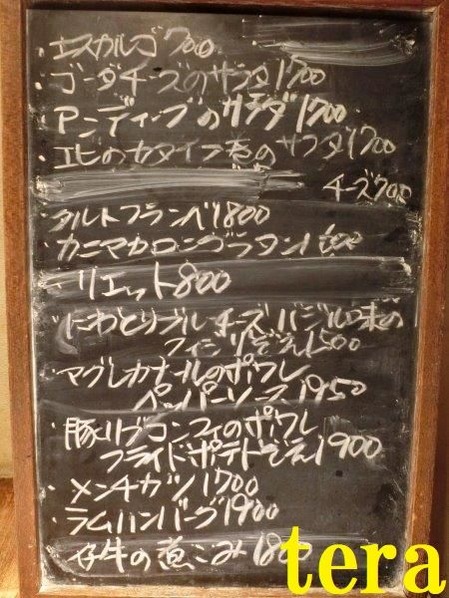 ・エスカルゴ 700
・ゴーダチーズのサラダ1700
・アンディーブのサラダ1700
・エビのカダイフ巻のサラダ1700
チーズ700
・タルトフランベ1800
・カニマカロニグラタン1600
・リエット800
・にわとりブルーチーズバジル味の
フィジリぞえ1500
・マグレカナールのポワレ
ペッパーソース1950
・豚リブコンフィのポワレ
フライドポテトぞえ1900
・メンチカツ1700
・ラムハンバーグ1900
・仔牛の煮こみ
tera